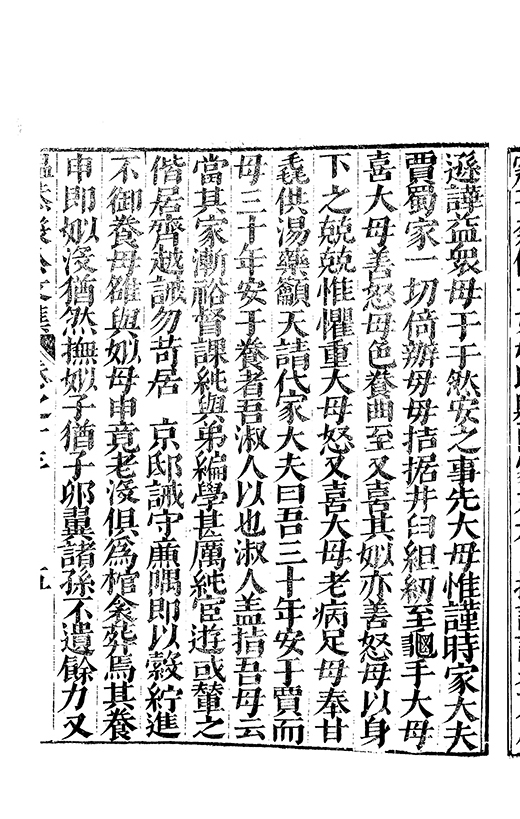 遜譁益衆母于于然安之事先大母惟謹時家大夫
賈蜀家一切倚辦毋毋拮据井臼組紃至龜手大母
喜大母善怒母色養曲至又喜其姒亦善怒母以身
下之兢兢惟懼重大母怒又喜大母老病足母奉甘
毳供湯藥籲天請代家大夫曰吾三十年安于賈而
母三十年安于養者吾淑人以也淑人盖指吾母云
當其家漸裕督課純與弟編學甚厲純宦遊或輦之
偕居齊越誡勿苛居　京邸誡守廉隅即以縠紵進
不御養母雖與姒母申竟老沒俱為棺衾葬焉其養
申即姒沒猶然撫姒子猶子卵翼諸孫不遺餘力又
五